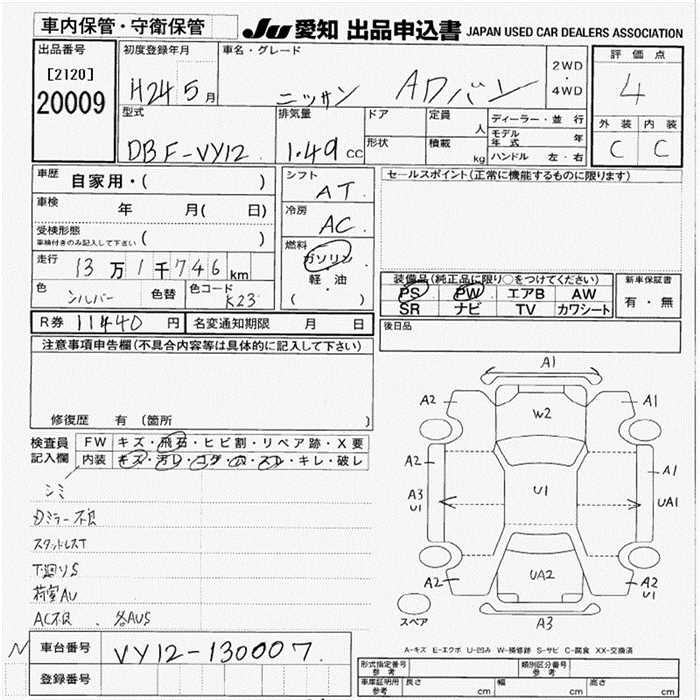 車内保管・守衛保管
JU 愛知 出品申込書 JAPAN USED CAR DEALERS ASSOCIATION
出品番号
[2120]
20009
初度登録年月
H24 5月
車名・グレード
ニッサン ADバン
2WD
・
4WD
評価点
4
外装 内装
C C
型式
DBF-VY12
排気量
1.49cc
ドア
形状
定員 人
積載 kg
ディーラー・並行
モデル年式 年
ハンドル 左・右
車歴 自家用・( )
車検 年 月( 日)
受検形態
車検付きのみ記入して下さい ( )
走行 13万1千746km
色 シルバー 色替 色コード K23
シフト
AT
冷房
AC
燃料
ガソリン
軽・油
( )
セールスポイント(正常に機能するものに限ります)
装備品(純正品に限り○をつけてください)
PS PW エアB AW
SR ナビ TV カワシート
新車保証書
有・無
後日品
R券 11440円 名変通知期限 月 日
注意事項申告欄(不具合内容等は具体的に記入して下さい)
修復歴 有 (箇所 )
検査員
記入欄
FW キズ・飛石・ヒビ割・リペア跡・X要
内装 キズ・汚レ・コゲ・穴・スレ・キレ・破レ
シミ
スタッドレスT
下廻りS
荷室AU
AC不良 各AUS
A1
A2
W2
A1
A2
A1
A3
U1
U1
UA1
A2
UA2
A2
U1
A3
スペア
A-キズ E-エクボ U-凹み W-補修跡 S-サビ C-腐食 XX-交換済
N 車台番号 VY12-130007
登録番号
形式指定番号
参考
類別区分番号
参考
車庫証明用
参考
長さ cm 幅 cm 高さ cm